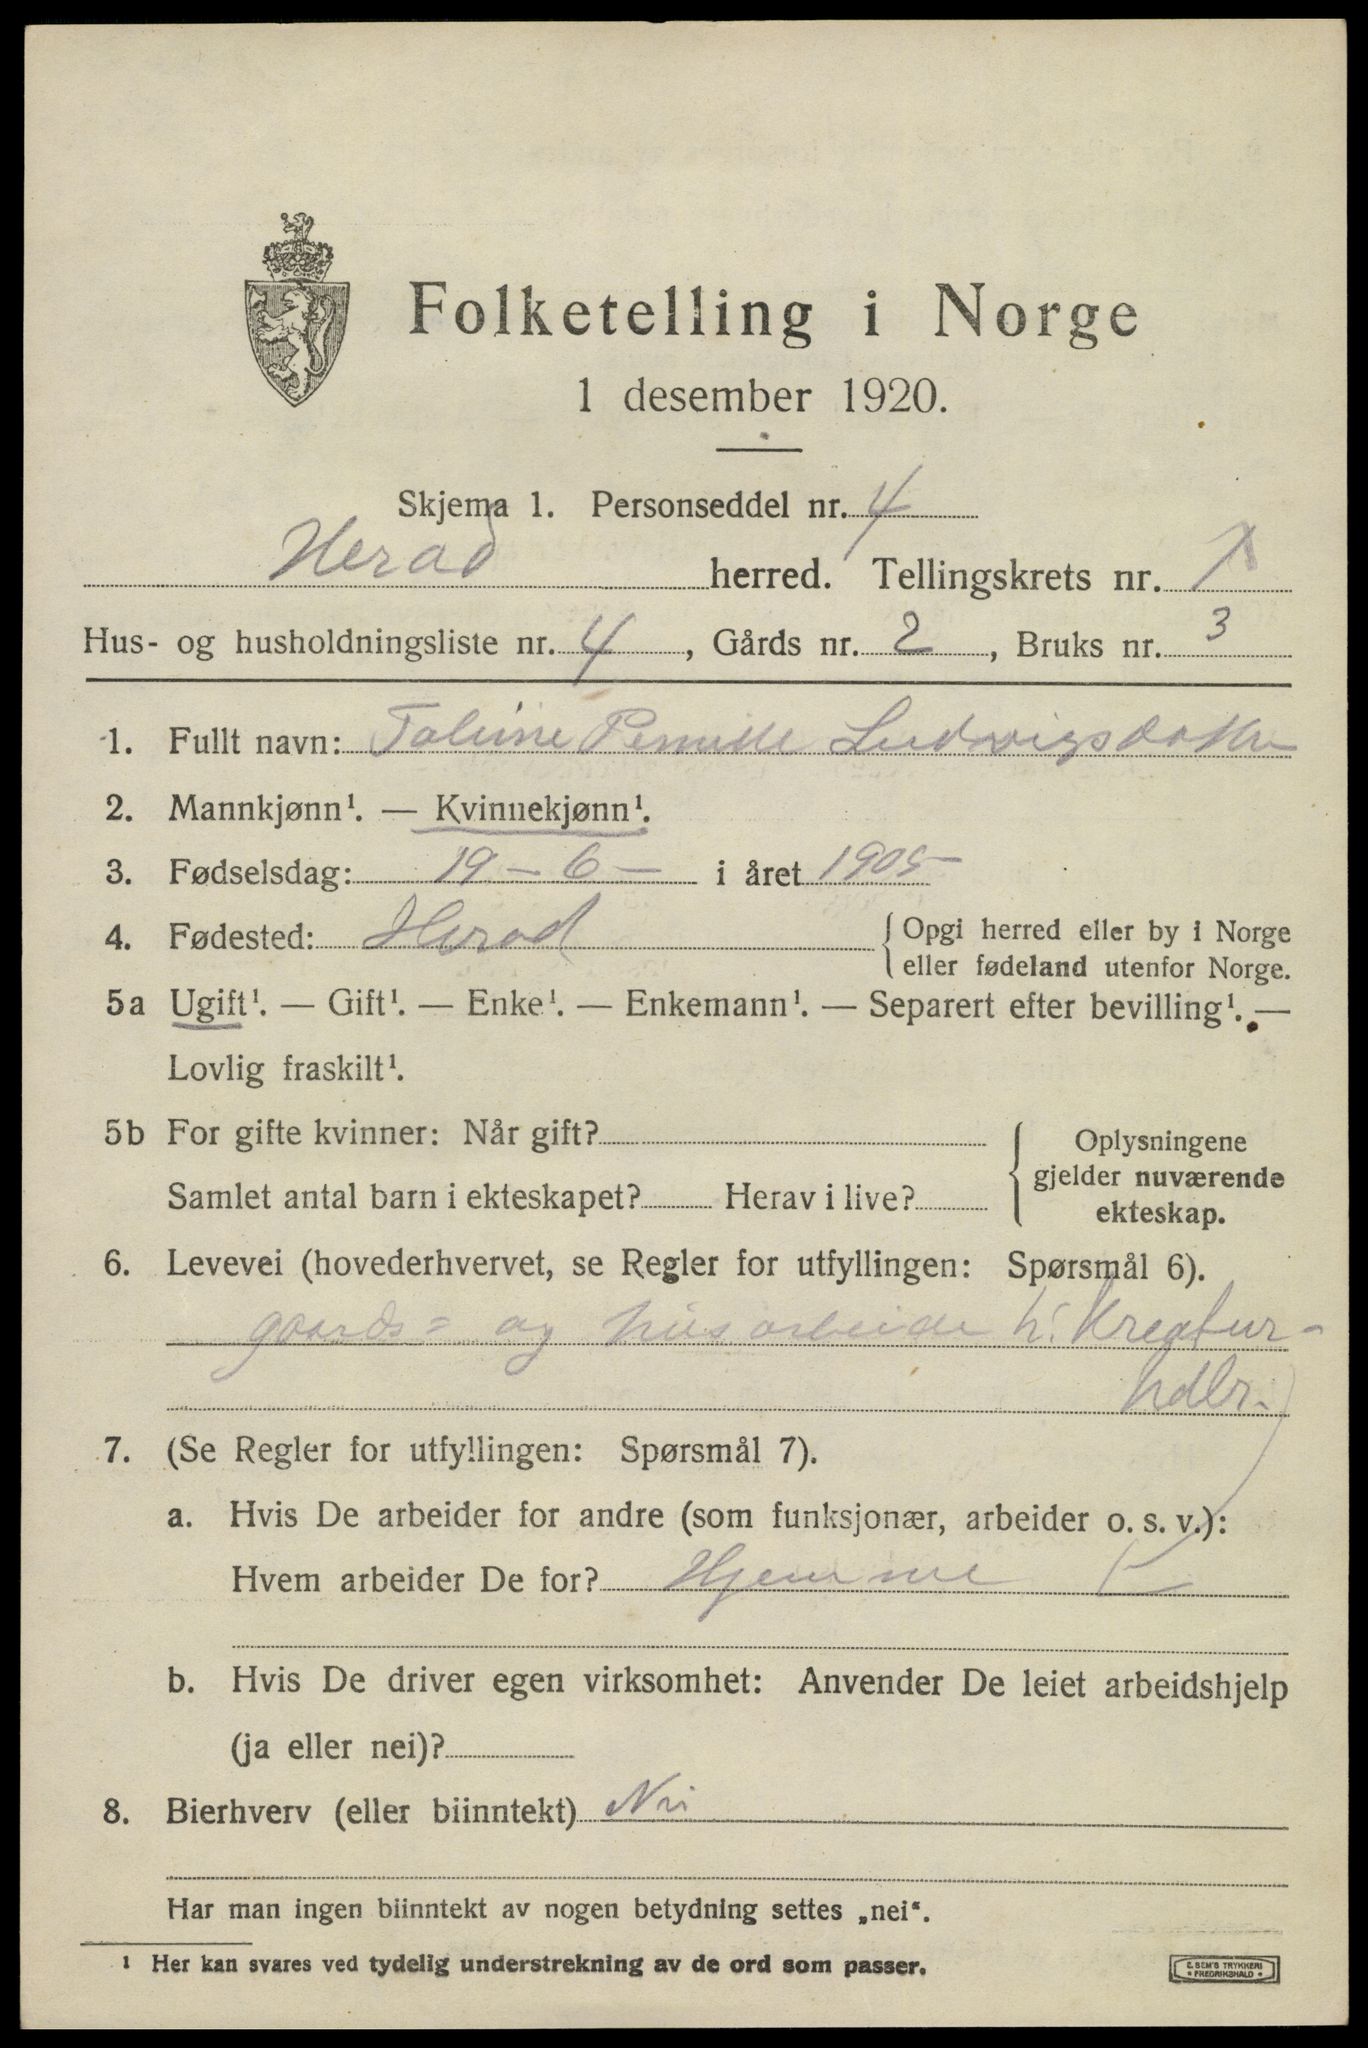 Folketelling i Norge
1 desember 1920.
Skjema 1. Personseddel nr. 4
Herad herred. Tellingskrets nr. 1
Hus- og husholdningsliste nr. 4, Gårds nr. 2, Bruks nr. 3
1. Fullt navn: Taline Pernille Ludvigsdatter
2. Mannkjønn¹. — Kvinnekjønn¹.
3. Fødselsdag: 19 – 6 – i året 1905
4. Fødested: Herad { Opgi herred eller by i Norge
eller fødeland utenfor Norge.
5a Ugift¹. — Gift¹. — Enke¹. — Enkemann¹. — Separert efter bevilling¹. —
Lovlig fraskilt¹.
5b For gifte kvinner: Når gift?
Samlet antal barn i ekteskapet? Herav i live?
{ Oplysningene
gjelder nuværende
ekteskap.
6. Levevei (hovederhvervet, se Regler for utfyllingen: Spørsmål 6).
gaards= og husarbeide h. Kreatur-
hdlr.
7. (Se Regler for utfyllingen: Spørsmål 7).
a. Hvis De arbeider for andre (som funksjonær, arbeider o. s. v.):
Hvem arbeider De for? Hjemme
b. Hvis De driver egen virksomhet: Anvender De leiet arbeidshjelp
(ja eller nei)?
8. Bierhverv (eller biinntekt) Nei
Har man ingen biinntekt av nogen betydning settes „nei“.
¹ Her kan svares ved tydelig understrekning av de ord som passer.
E. SEM'S TRYKKERI
• FREDRIKSHALD •